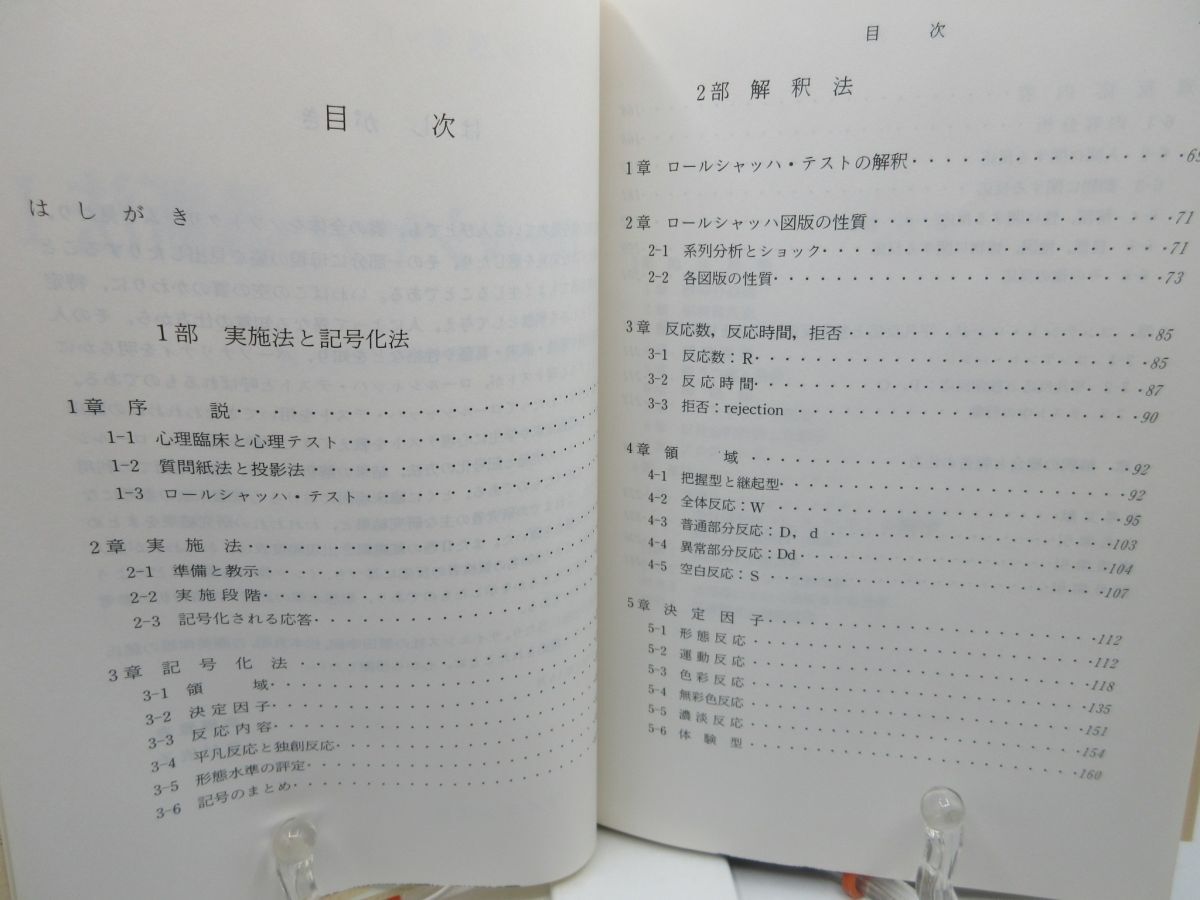 目 次
は し が き
1部 実施法と記号化法
1章 序 説
1-1 心理臨床と心理テスト
1-2 質問紙法と投影法
1-3 ロールシャッハ・テスト
2章 実 施 法
2-1 準備と教示
2-2 実施段階
2-3 記号化される応答
3章 記 号 化 法
3-1 領 域
3-2 決定因子
3-3 反応内容
3-4 平凡反応と独創反応
3-5 形態水準の評定
3-6 記号のまとめ
目 次
2部 解 釈 法
1章 ロールシャッハ・テストの解釈 69
2章 ロールシャッハ図版の性質 71
2-1 系列分析とショック 71
2-2 各図版の性質 73
3章 反応数,反応時間,拒否 85
3-1 反応数:R 85
3-2 反応時間 87
3-3 拒否:rejection 90
4章 領 域 92
4-1 把握型と継起型 92
4-2 全体反応:W 95
4-3 普通部分反応:D, d 103
4-4 異常部分反応:Dd 104
4-5 空白反応:S 107
5章 決 定 因 子 112
5-1 形態反応 112
5-2 運動反応 118
5-3 色彩反応 135
5-4 無彩色反応 151
5-5 濃淡反応 154
5-6 体 験 型 160